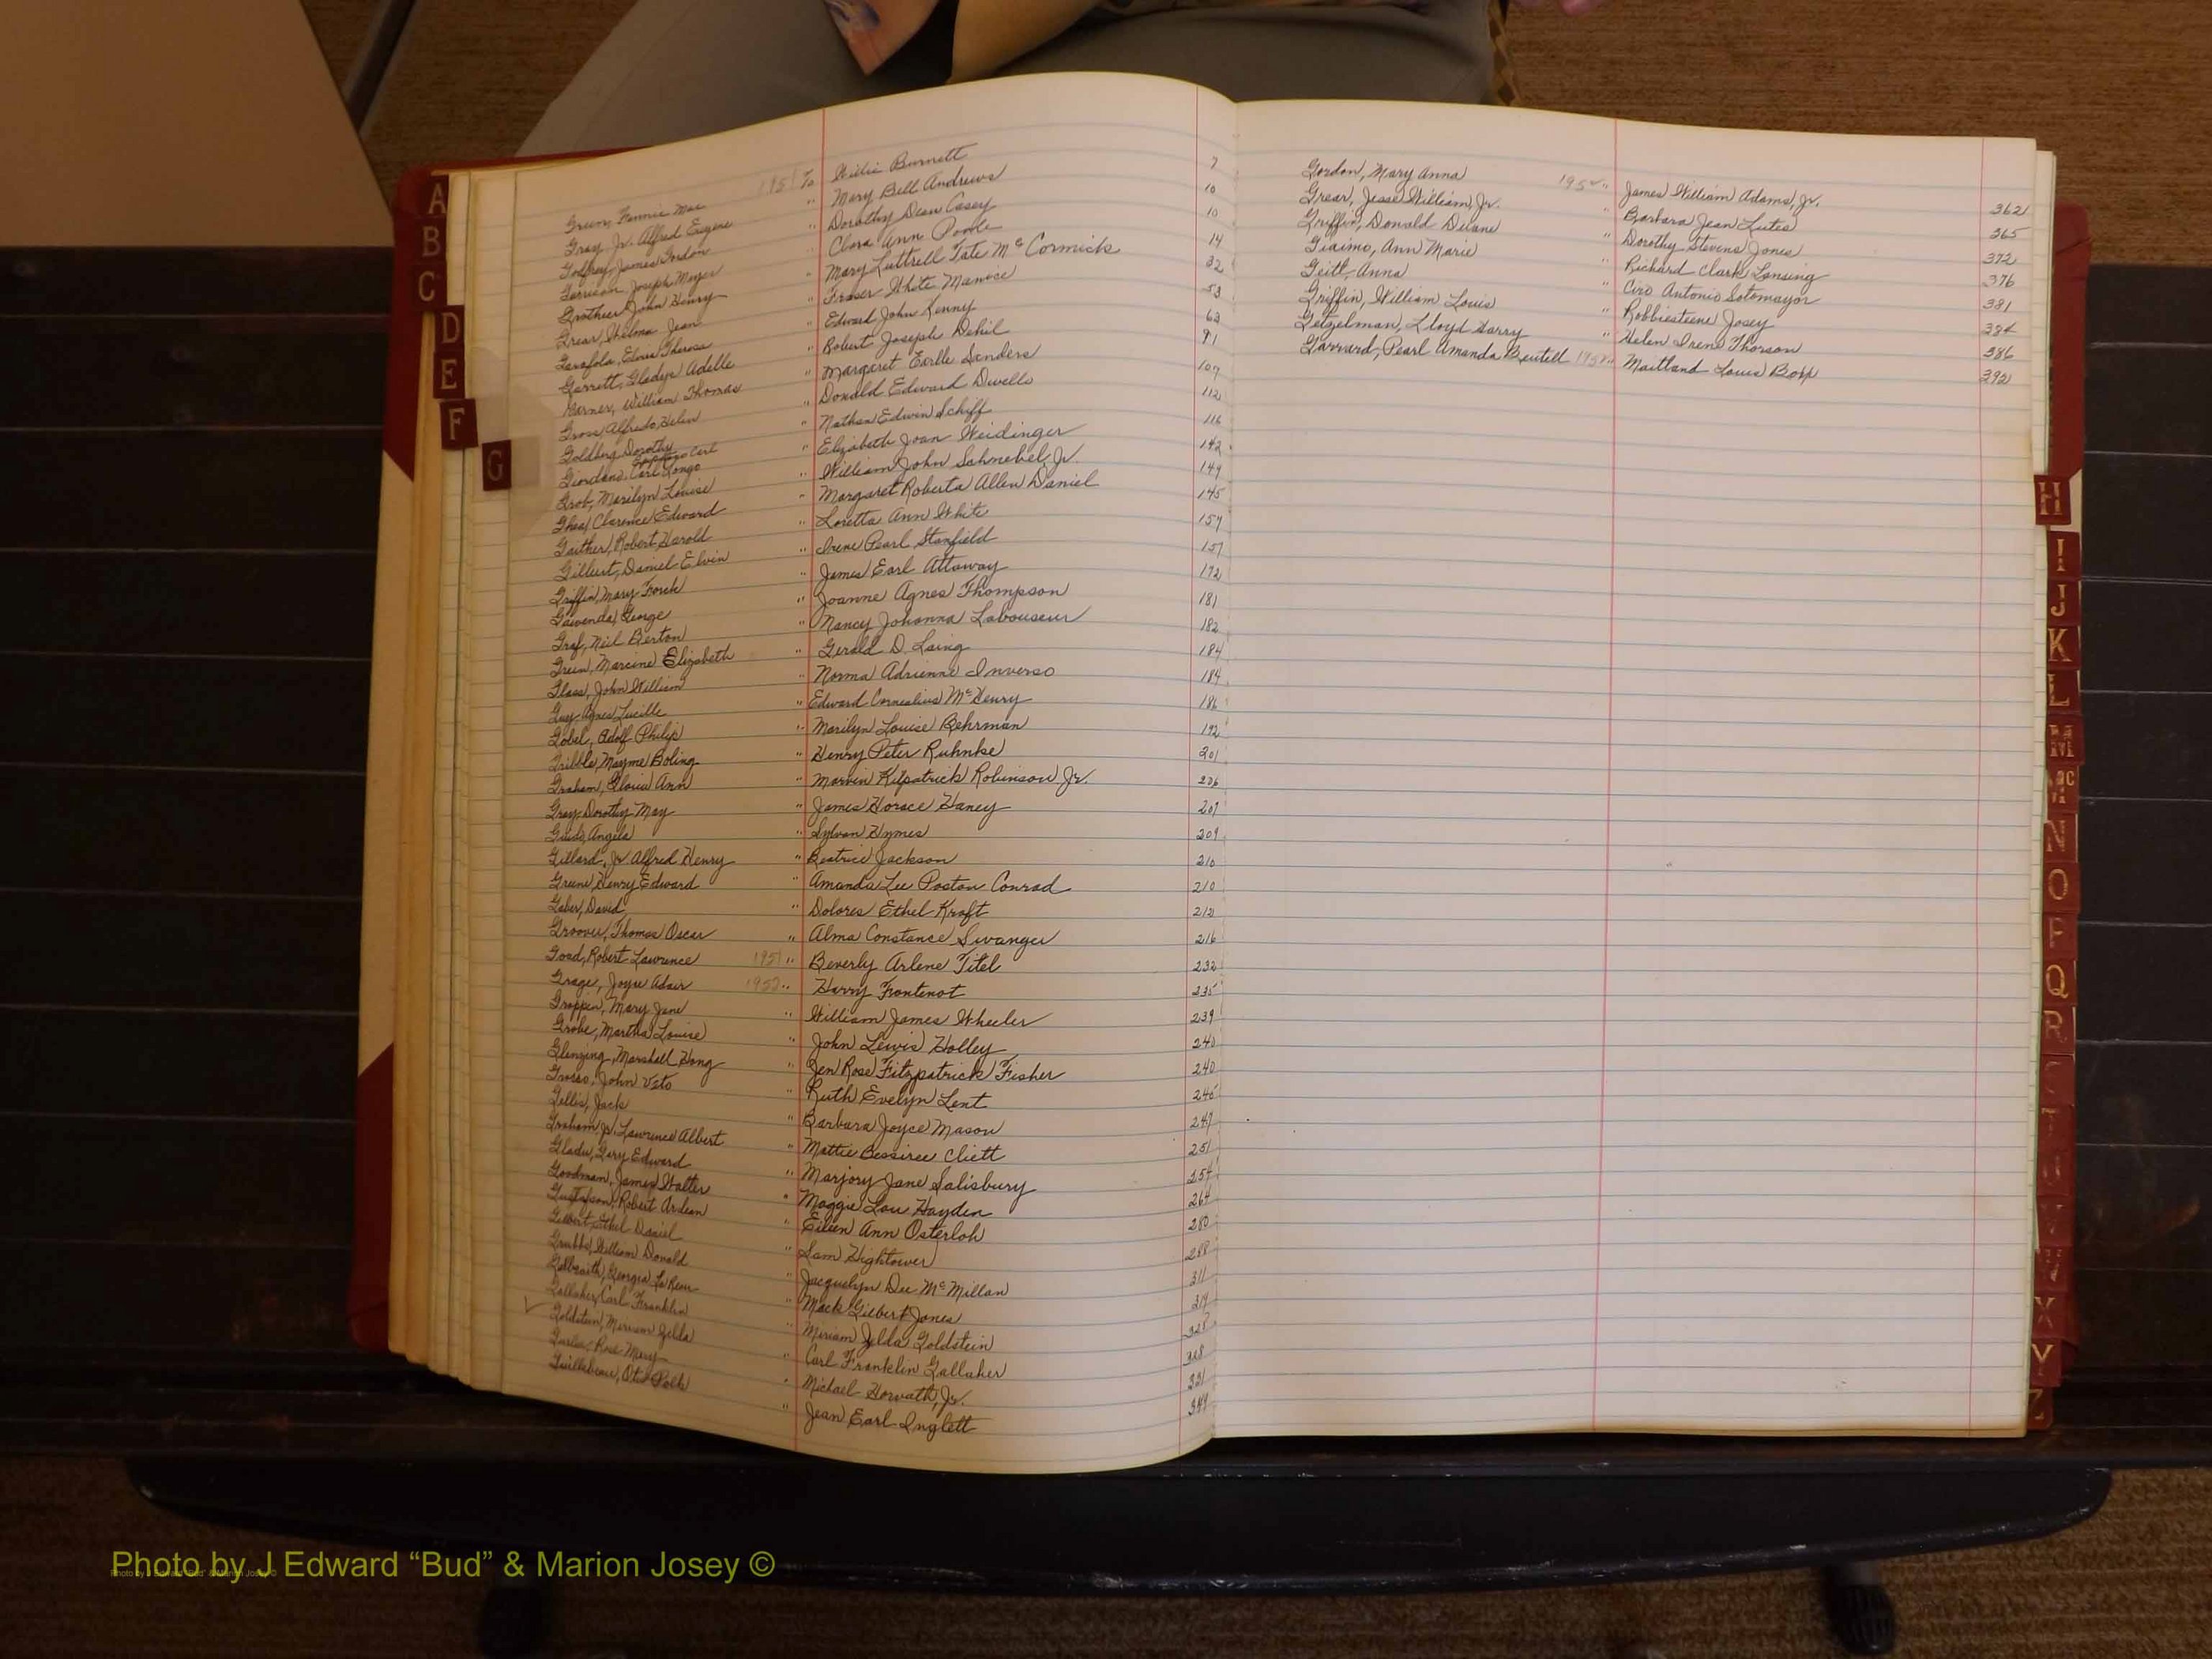 A
B
C
D
E
F
G
Green, Fannie Mae 1951 To Willie Burnett 7
Gray, Jr. Alfred Eugene " Mary Bell Andrews 10
Godfrey, James Gordon " Dorothy Dean Casey 10
Garrison, Joseph Mayer " Clara Ann Poole 14
Grothier, John Henry " Mary Luttrell Tate McCormick 32
Grear, Thelma Jean " Fraser White Manice 53
Garafola, Elvira Theresa " Edward John Kenny 63
Garrett, Gladys Adelle " Robert Joseph Dehil 91
Garner, William Thomas " Margaret Earlle Sanders 107
Gross, Alfreda Helen " Donald Edward Divello 112
Goldberg, Dorothy " Nathan Edwin Schiff 116
Giordano, Carl Longo " Elizabeth Joan Weidinger 142
Grob, Marilyn Louise " William John Schnebel, Jr. 144
Ghea, Clarence Edward " Margaret Roberta Allen Daniel 145
Gaither, Robert Harold " Loretta Ann White 157
Gilbert, Daniel Elvin " Irene Pearl Stanfield 157
Griffin, Mary Fonch " James Earl Attaway 172
Gawenda, George " Joanne Agnes Thompson 181
Graf, Neil Berton " Nancy Johanna Labouseur 182
Green, Marcine Elizabeth " Gerald D. Laing 184
Glass, John William " Norma Adrienne Inverso 184
Guy, Agnes Lucille " Edward Cornealius McHenry 186
Gobel, Adolf Philip " Marilyn Louise Behrman 192
Gribble, Mayme Boling " Henry Peter Ruhnke 201
Graham, Gloria Ann " Marvin Kilpatrick Robinson Jr. 206
Gray, Dorothy May " James Horace Haney 207
Guido, Angela " Sylvan Hymes 209
Gillard, Jr. Alfred Henry " Beatrice Jackson 210
Greene, Henry Edward " Amanda Lee Poston Conrad 210
Gaber, David " Dolores Ethel Kraft 212
Groover, Thomas Oscar " Alma Constance Swanger 216
Goad, Robert Lawrence 1951 " Beverly Arlene Titel 232
Grage, Joyce Adair 1952 " Harry Frontenot 235
Groppen, Mary Jane " William James Wheeler 239
Grobe, Martha Louise " John Lewis Holley 240
Glenzing, Marshall Hong " Jen Rose Fitzpatrick Fisher 240
Grosso, John Veto " Ruth Evelyn Lent 246
Gellis, Jack " Barbara Joyce Mason 247
Graham, Jr. Lawrence Albert " Mattie Bessiree Cliett 251
Gladu, Gary Edward " Marjory Jane Salisbury 254
Goodman, James Walter " Maggie Lou Hayden 264
Gustafson, Robert Ardean " Eileen Ann Osterloh 280
Gilbert, Ethel Daniel " Sam Hightower 288
Grubbs, William Donald " Jacquelyn Dee McMillan 311
Galbraith, Georgia La Reue " Mack Gilbert Jones 314
Gallaher, Carl Franklin " Miriam Zelda Goldstein 328
Goldstein, Miriam Zelda " Carl Franklin Gallaher 328
Rose Mary " Michael Horvath, Jr. 331
Guillebeau, Otis Polk " Jean Earl Inglett 344
Gordon, Mary Anna 1952 " James William Adams, Jr. 362
Grear, Jesse William, Jr. " Barbara Jean Lutes 365
Griffin, Donald Duane " Dorothy Stevens Jones 372
Giaimo, Ann Marie " Richard Clark Lansing 376
Geitl, Anna " Ciro Antonio Sotomayor 381
Griffin, William Louis " Robbiesteene Josey 384
Getzelman, Lloyd Harry " Helen Irene Thorson 386
Garrard, Pearl Amanda Beutell 1952 " Maitland Louis Bopp 392
H
I
J
K
L
M
Mc
N
O
P
Q
R
T
U
V
W
X
Y
Z
Photo by J Edward “Bud” & Marion Josey ©
Photo by J Edward “Bud” & Marion Josey ©